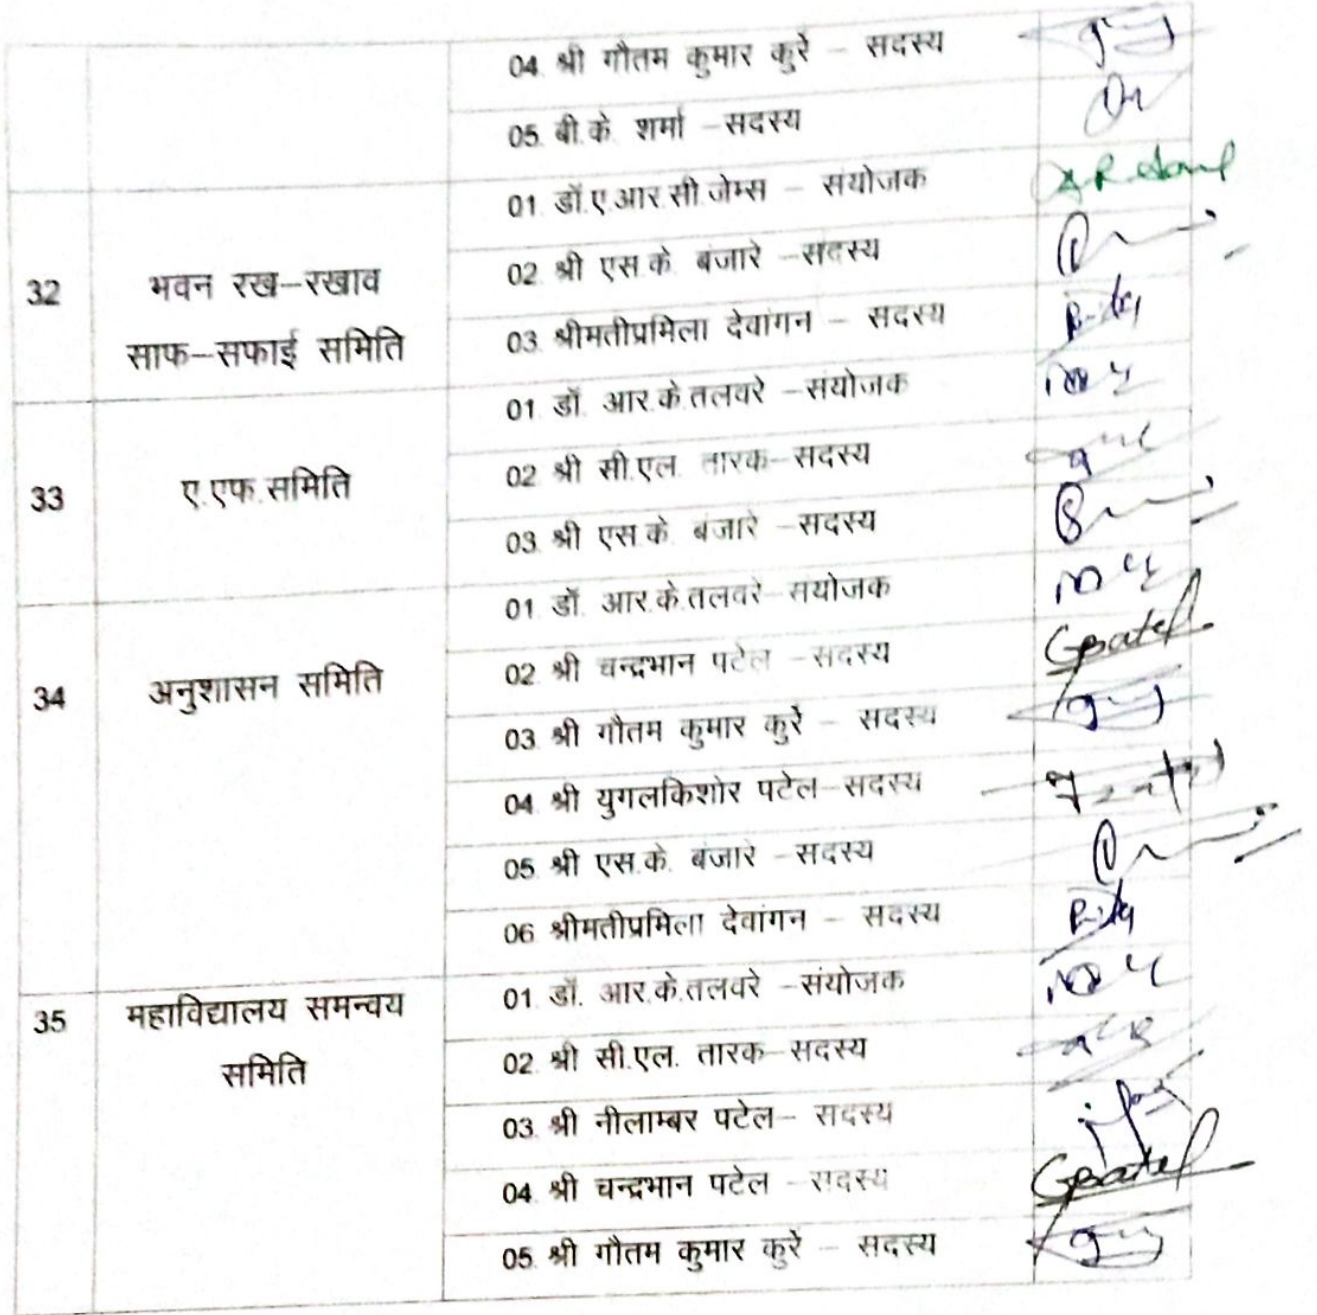 04. श्री गौतम कुमार कुर्रे – सदस्य
05. बी.के. शर्मा –सदस्य
32
भवन रख–रखाव
साफ–सफाई समिति
01. डॉ.ए.आर.सी.जेम्स – संयोजक
02. श्री एस.के. बंजारे –सदस्य
03. श्रीमतीप्रमिला देवांगन – सदस्य
33
ए.एफ.समिति
01. डॉ. आर.के.तलवरे –संयोजक
02. श्री सी.एल. तारक–सदस्य
03. श्री एस.के. बंजारे –सदस्य
34
अनुशासन समिति
01. डॉ. आर.के.तलवरे–संयोजक
02. श्री चन्द्रभान पटेल –सदस्य
Cpatel
03. श्री गौतम कुमार कुर्रे – सदस्य
04. श्री युगलकिशोर पटेल–सदस्य
05. श्री एस.के. बंजारे –सदस्य
06. श्रीमतीप्रमिला देवांगन – सदस्य
35
महाविद्यालय समन्वय
समिति
01. डॉ. आर.के.तलवरे –संयोजक
02. श्री सी.एल. तारक–सदस्य
03. श्री नीलाम्बर पटेल– सदस्य
04. श्री चन्द्रभान पटेल –सदस्य
Cpatel
05. श्री गौतम कुमार कुर्रे – सदस्य